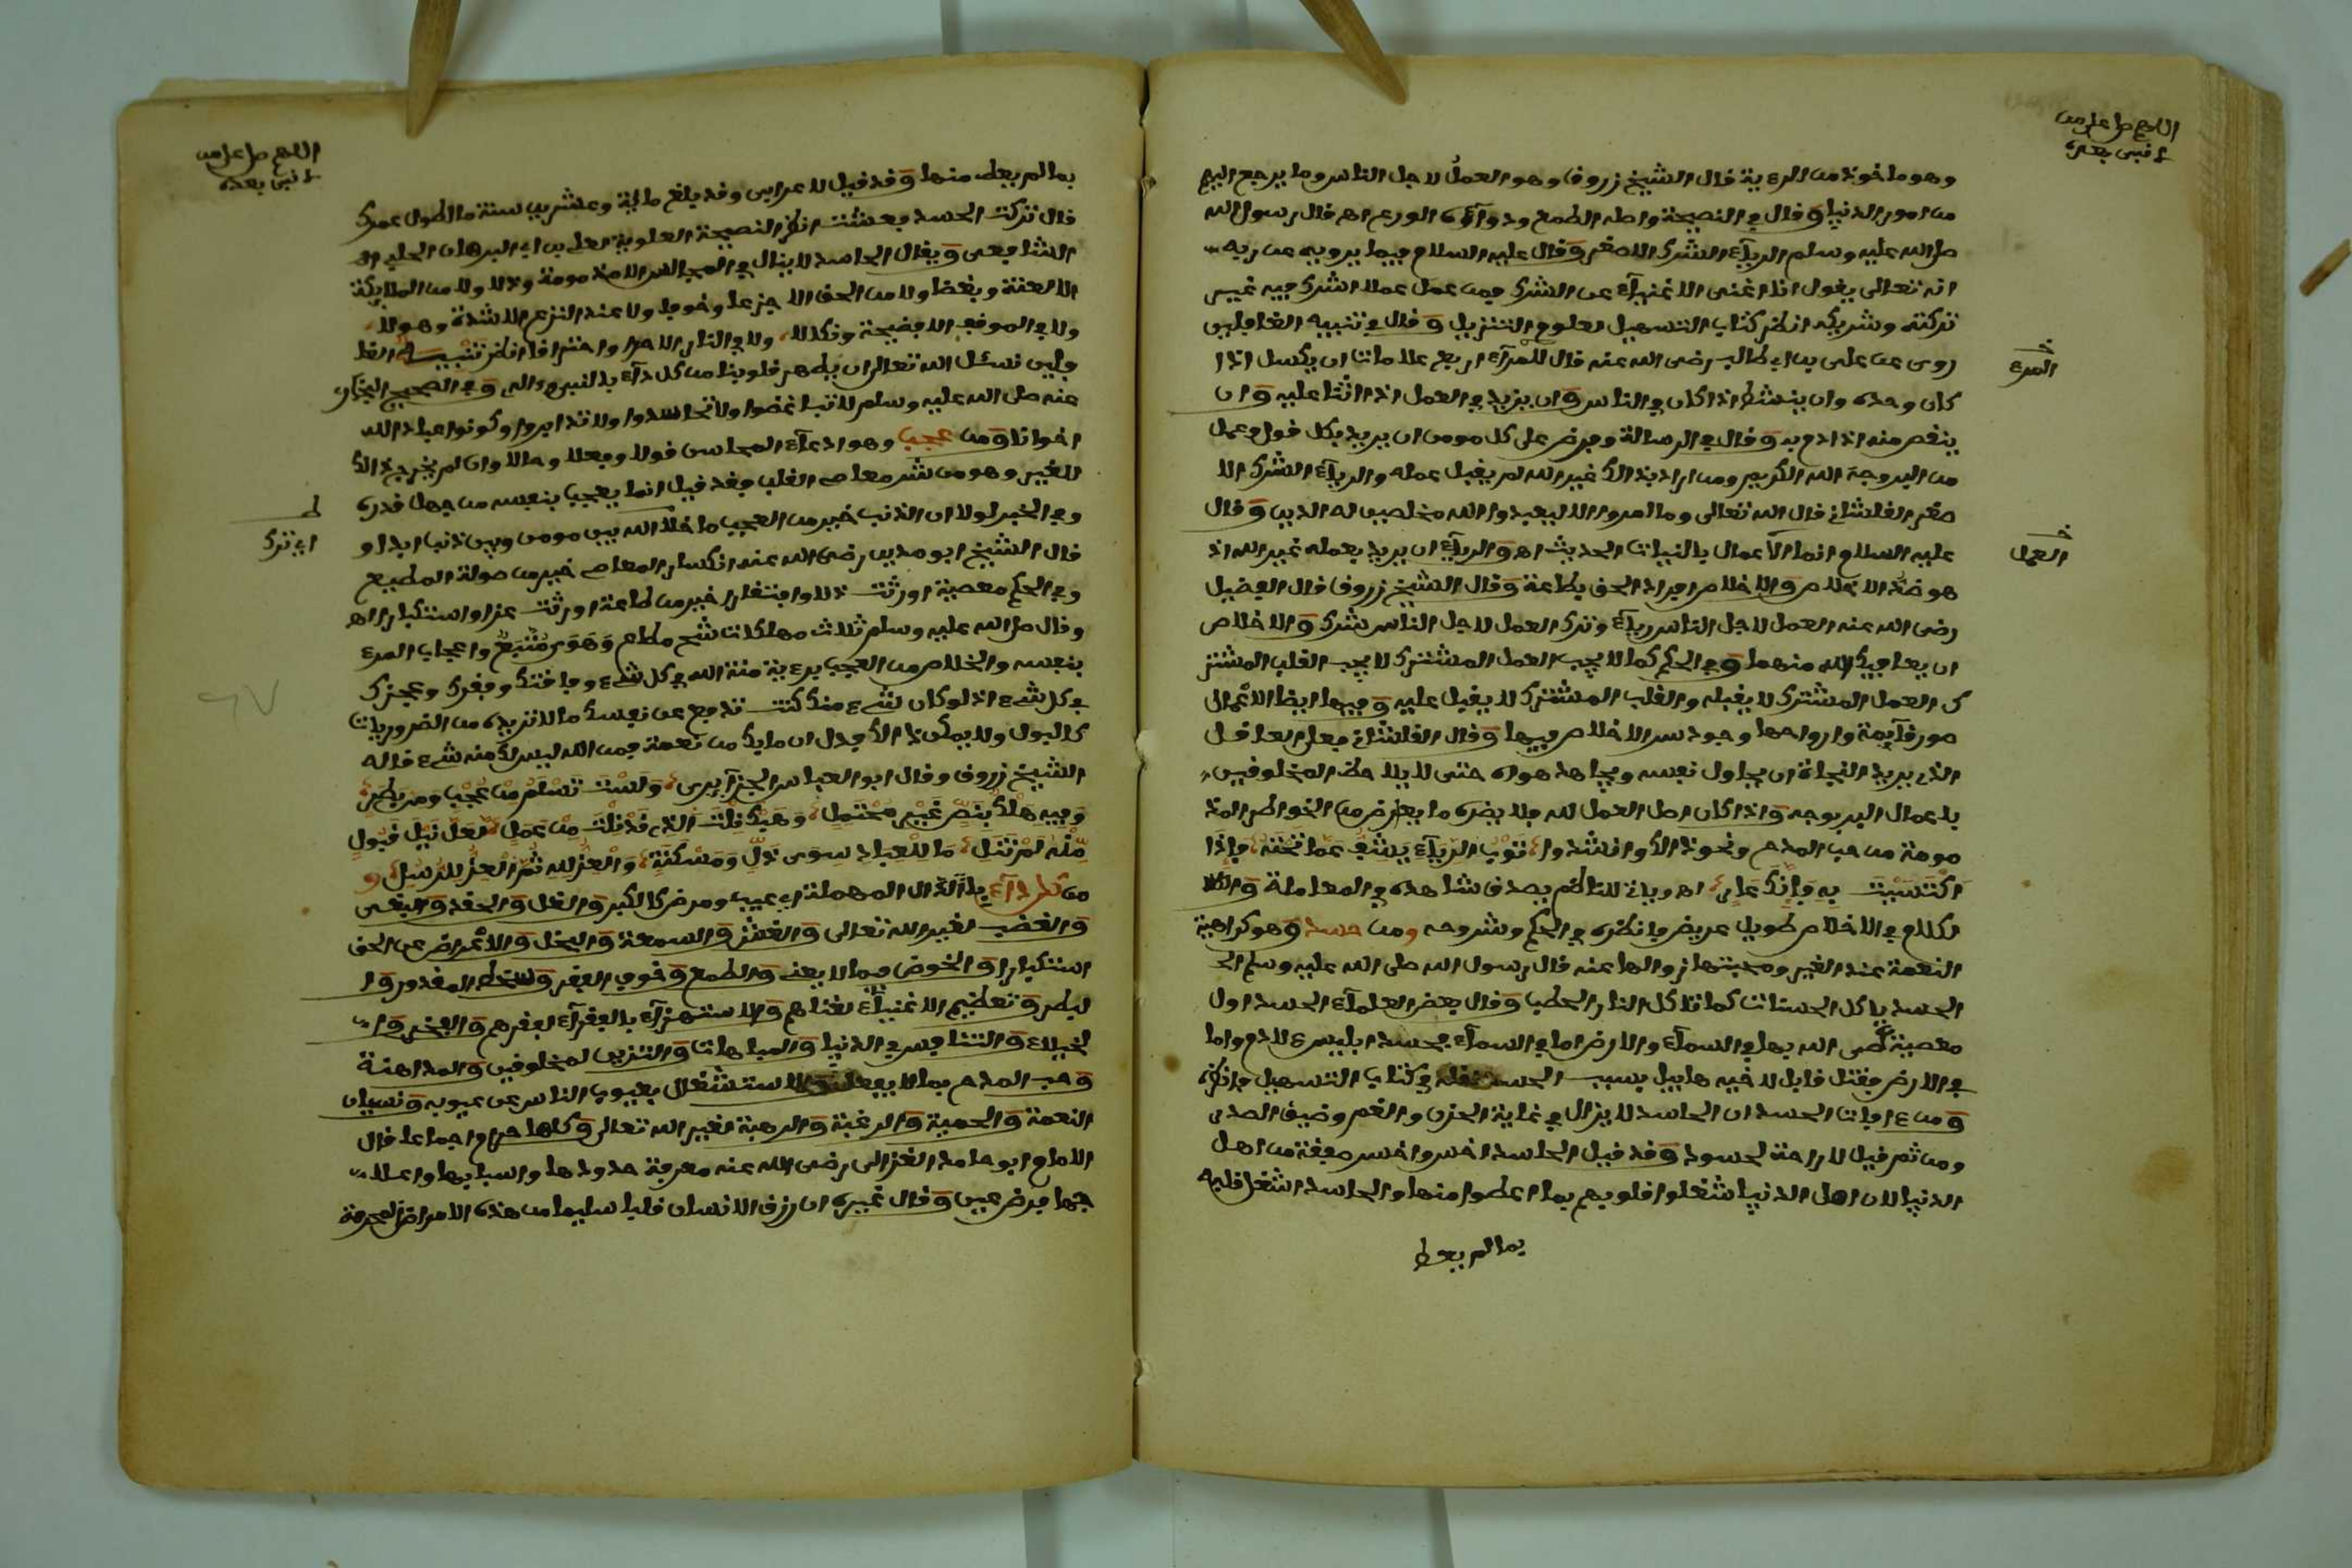 اللهم صل على من
لا نبي بعده
وهو ماخوذ من الرءية قال الشيخ زروق وهو العمل لاجل الناس وما يرجع اليهم
من امور الدنيا وقال في النصيحة واصله الطمع ودوآؤه الورع اهـ قال رسول الله
صلى الله عليه وسلم الريآء الشرك الاصغر وقال عليه السلام فيما يرويه عن ربه
انه تعالى يقول انا اغنى الاغنيآء عن الشرك فمن عمل عملا اشرك فيه غيري
تركته وشريكه انظر كتاب التسهيل لعلوم التنزيل وقال في تنبيه الغافلين
روى عن علي بن ابي طالب رضي الله عنه قال للمرآءي اربع علامات ان يكسل اذا
كان وحده وان ينشط اذا كان في الناس وان يزيد في العمل اذا اثنا عليه وان
ينقص منه اذا ذم به وقال في الرسالة وفرض على كل مومن ان يريد بكل قول وعمل
من البر وجه الله الكريم ومن اراد بذالك غير الله لم يقبل عمله والريآء الشرك الا
صغر القلشاني قال الله تعالى وما امروا الا ليعبدوا الله مخلصين له الدين وقال
عليه السلام انما الاعمال بالنيات الحديث اهـ والريآء ان يريد بعمله غير الله اذ
هو ضد الاخلاص والاخلاص افراد الحق بطاعة وقال الشيخ زروق قال الفضيل
رضي الله عنه العمل لاجل الناس ريآء وترك العمل لاجل الناس شرك والاخلاص
ان يعافيك الله منهما وفي الحكم كما لا يحب العمل المشترك لا يحب القلب المشتر
ك العمل المشترك لا يقبله والقلب المشترك لا يقبل عليه وفيها ايضا الاعمال
صور قآيمة وارواحها وجود سر الاخلاص فيها وقال القلشاني فعلى العاقل
الذي يريد النجاة ان يحاول نفسه ويجاهد هواه حتى لا يلاحظ المخلوفين
باعمال البر بوجه واذا كان اصل العمل لله فلا يضره ما يعرض من الخواطر المذ
مومة من حب المدح ونحو ذالك وانشدوا ثَوْبُ الرِّيآءِ يَشِفُّ عَمَّا تَحْتَهُ فإذَا
اكْتَسَيْتَ بِهِ فَإِنَّكَ عَارِى اهـ ويا في للناظم يصدق شاهده في المعاملة والـ
لكلام في الاخلاص طويل عريض فانظره في الحكم وشروحه ومن حسد وهو كراهية
النعمة عند الغير ومحبتها زوالها عنه قال رسول الله صلى الله عليه وسلم الحـ
الحسد ياكل الحسنات كما تاكل النار الحطب وقال بعض العلمآء الحسد اول
معصية عصى الله بها في السمآء والارض اما في السمآء فحسد ابليس ءلادم واما
في الارض فقتل قابل لاخيه هابيل بسبب الحسد نقله في كتاب التسهيل فانظره
ومن ءافات الحسد ان الحاسد لا يزال في غاية الحزن والغم وضيق الصدر
ومن ثم قيل لا راحة لحسود وقد قيل الحاسد اخس واخسر صفقة من اهل
الدنيا لان اهل الدنيا شغلوا قلوبهم بما اعطوا منها والحاسد اشغل قلبه
بما لم يعط
المرء
العمل
اللهم صل على من
لا نبي بعده
بما لم يعط منها وقد قيل لاعرابي وقد بلغ ماية وعشرين سنة ما اطول عمرك
قال تركت الحسد فعشت انظر النصيحة العلوية لعلي بن ابي البرهان الحلبي الـ
الشافعي ويقال الحاسد لا ينال في المجالس الا مذمومة وذلا ولا من الملايكة
الا لعنة وبغضا ولا من الخلق الا جزعا وغما ولا عند النزع الا شدة وهولا
ولا في الموقف الا فضيحة ونكالا ولا في النار الا حرا واحتراقا انظر تنبيه الغا
فلين نسئل الله تعالى ان يطهر قلوبنا من كل دآء بالنبي وءاله وفي الصحيح البخاري
عنه صلى الله عليه وسلم لا تباغضوا ولا تحاسدوا ولا تدابروا وكونوا عباد الله
اخوانا ومن عجب وهو ادعآء المحاسن قولا وفعلا وحالا وان لم يخرج ذالك
للغير وهو من شر معاصي القلب فقد قيل انما يعجب بنفسه من جهل قدره
وفي الخبر لولا ان الذنب خير من العجب ما خلا الله بين مومن وبين ذنب ابدا و
قال الشيخ ابو مدين رضي الله عنه انكسار العاصي خير من صولة المطيع
وفي الحكم معصية اورثت ذلا وافتقارا خير من طاعة اورثت عزا واستكبارا اهـ
وقال صلى الله عليه وسلم ثلاث مهلكات شح مطاع وَهَوىً مُتَّبَعٌ واعجاب المرء
بنفسه والخلاص من العجب برءية منة الله في كل شيء وفاقتك وفقرك وعجزك
في كل شيء اذ لو كان شيء منك كنت تدفع عن نفسك ما لا تريده من الضروريات
كالبول ولا يمكن ذالك فدل ان ما بك من نعمة فمن الله ليس لك منه شيء قاله
الشيخ زروق وقال ابو العباس الجزآيري وَلَسْتَ تَسْلَمُ مِنْ عُجْبٍ ومن بطر
وَفِيهِ هُلْكٌ بِنَصٍّ غَيْرِ مُحْتَمِلِ وَهَبْكَ نِلْتَ الذِي قَدْ نِلْتَ مِنْ عَمَلٍ لَعَلَّ نَيْلَ قَبُولٍ
مِنْهُ لَمْ تَنَلِ مَا لِلْعِبادِ سِوَى ذُلٍّ وَمَسْكَنَةٍ وَالْعِزُّ لِلهِ ثُمَّ الْعِزُّ لِلرُّسُلِ و
من كل دآء بالدال المهملة اي عيب ومرض كالكبر والغل والحقد والبغي
والغضب لغير الله تعالى والغش والسمعة والبخل والاعراض عن الحق
استكبارا والخوض فيما لا يعني والطمع وخوف الفقر وسخط المقدور وا
لبطر وتعظيم الاغنيآء لغناهم والاستهزآء بالفقرآء لفقرهم والفخر وا
لخيلاء والتنافس في الدنيا والمباهات والتزين لمخلوقين والمداهنة
وحب المدح بما لا يفعل والاستشغال بعيوب الناس عن عيوبه ونسيان
النعمة والحمية والرغبة والرهبة لغير الله تعالى وكلها حرام اجماعا قال
الامام ابو حامد الغزالي رضي الله عنه معرفة حدودها واسبابها وعلا
جها فرض عين وقال غيره ان رزق الانسان قلبا سليما من هذه الامراض المحرمة
اي ترك
٦٧